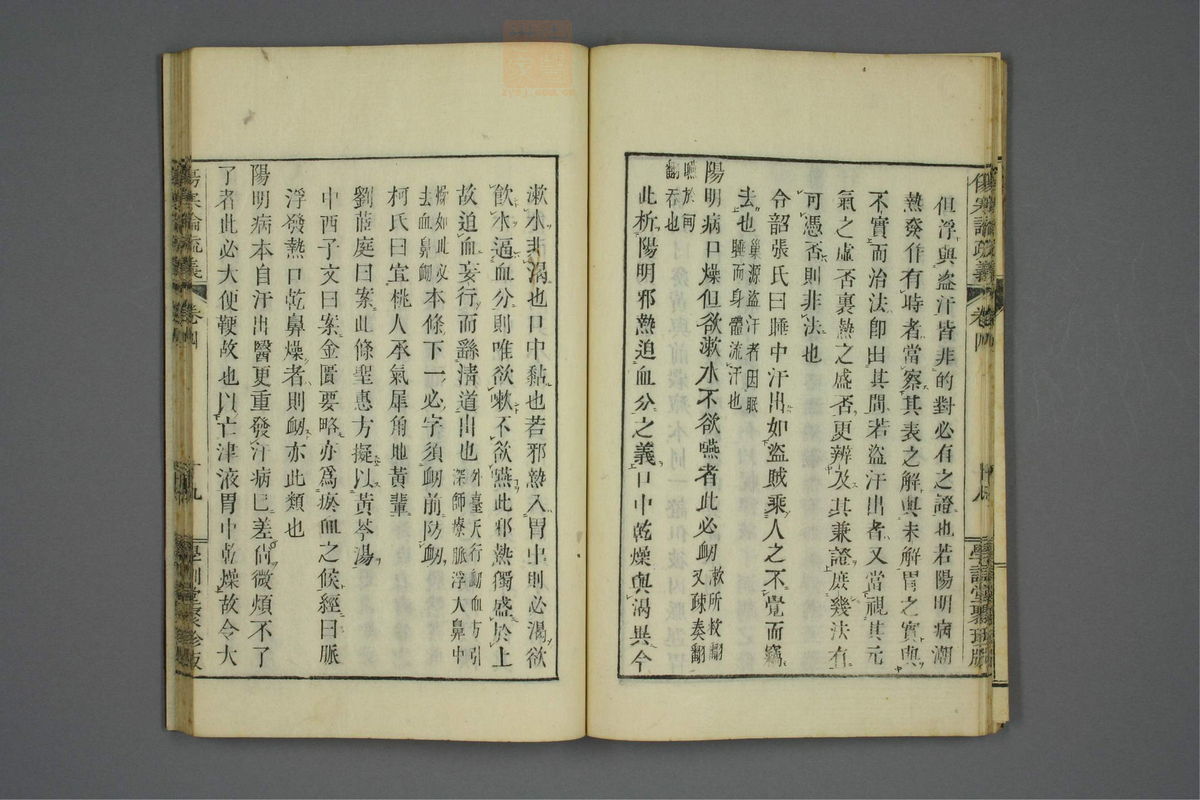 但浮與盗汗皆非的對必有之證也若陽明病潮
熱發作有時者當察其表之解與未解胃之實與
不實而治法卽出其間若盗汗出者又當視其元
氣之虛否裏熱之盛否更辨及其兼證庶幾法有
可憑否則非法也
令韶張氏曰睡中汗出如盜賊乘人之不覺而竊
去也
巢源盗汗者因眠
睡而身體流汗也
陽明病口燥但欲漱水不欲嚥者此必衂
漱所救翻
又疎奏翻
嚥於甸
翻吞也
此析陽明邪熱迫血分之義口中乾燥與渴異今
漱水非渴也口中黏也若邪熱入胃中則必渴欲
飮水逼血分則唯欲漱不欲嚥此邪熱獨盛於上
故迫血妄行而繇清道出也
外臺天行衂血方引
深師療脈浮大鼻中
燥如此必
去血鼻衂
本條下一必字須衂前防衂
柯氏曰宜桃人承氣犀角地黃輩
劉茝庭曰案此條聖惠方擬以黃芩湯
中西子文曰案金匱要略亦爲瘀血之候經曰脈
浮發熱口乾鼻燥者則衂亦此類也
陽明病本自汗出醫更重發汗病已差尙微煩不了
了者此必大便鞕故也以亡津液胃中乾燥故令大
傷寒論疏義
卷四
十九
學訓堂聚珍版